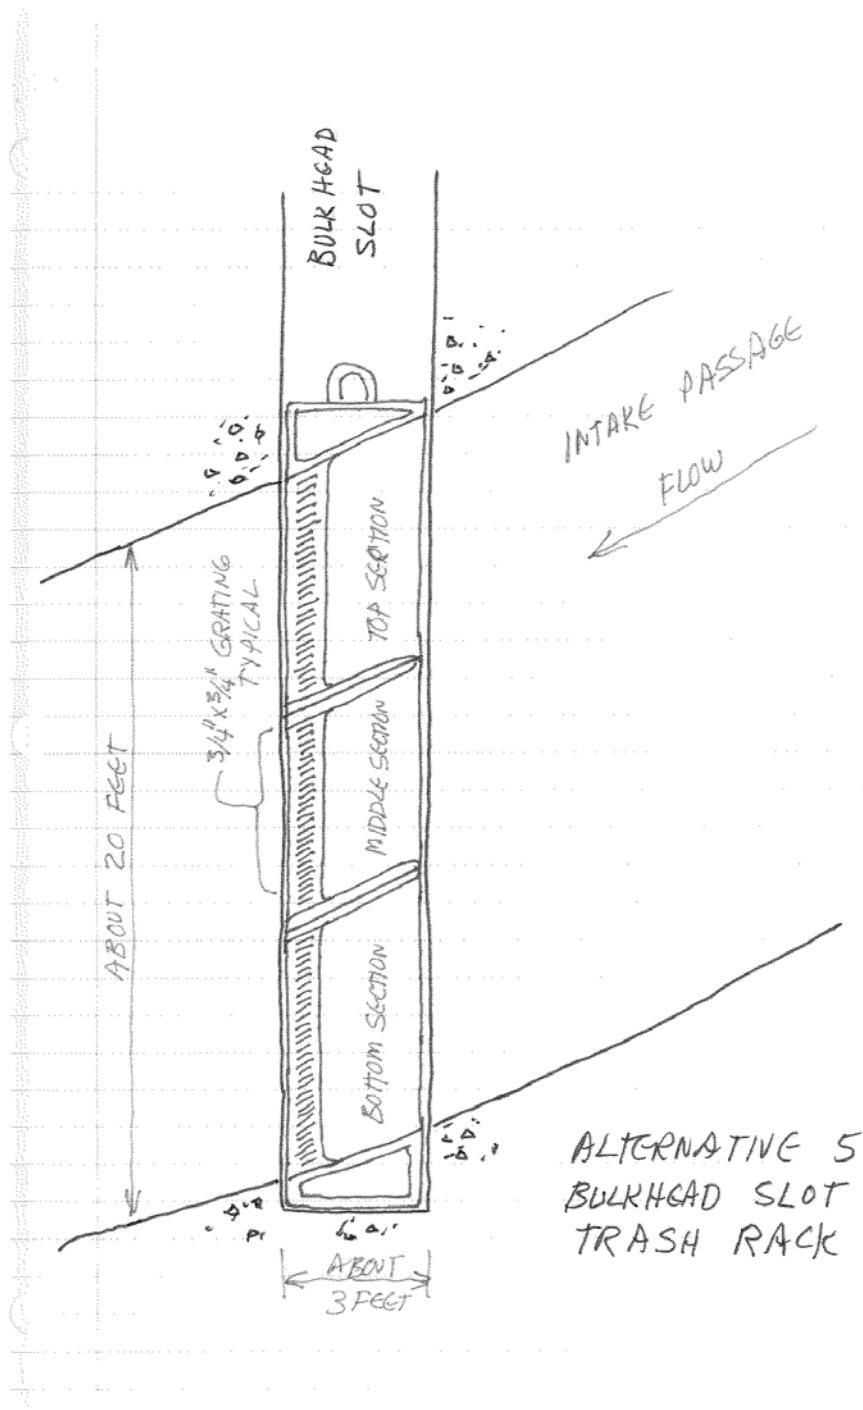 BULKHEAD
SLOT
INTAKE PASSAGE
FLOW
3/4" X 3/4" GRATING
TYPICAL
TOP SECTION
MIDDLE SECTION
BOTTOM SECTION
ABOUT 20 FEET
ABOUT
3 FEET
ALTERNATIVE 5
BULKHEAD SLOT
TRASH RACK